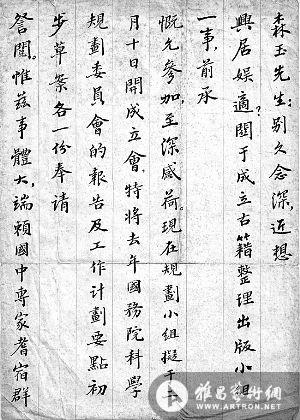 森玉先生：别久念深，近想
興居娱適？關于成立古籍整理出版小组
一事，前承
慨允參加，至深感荷。現在規劃小组擬于本
月十日開成立會，特將去年國務院科學
規劃委員會的報告及工作計劃要點初
步草案各一份奉請
詧閲。惟兹事體大，端賴國中專家耆宿群
雅昌藝術網
WWW.ARTRON.NET